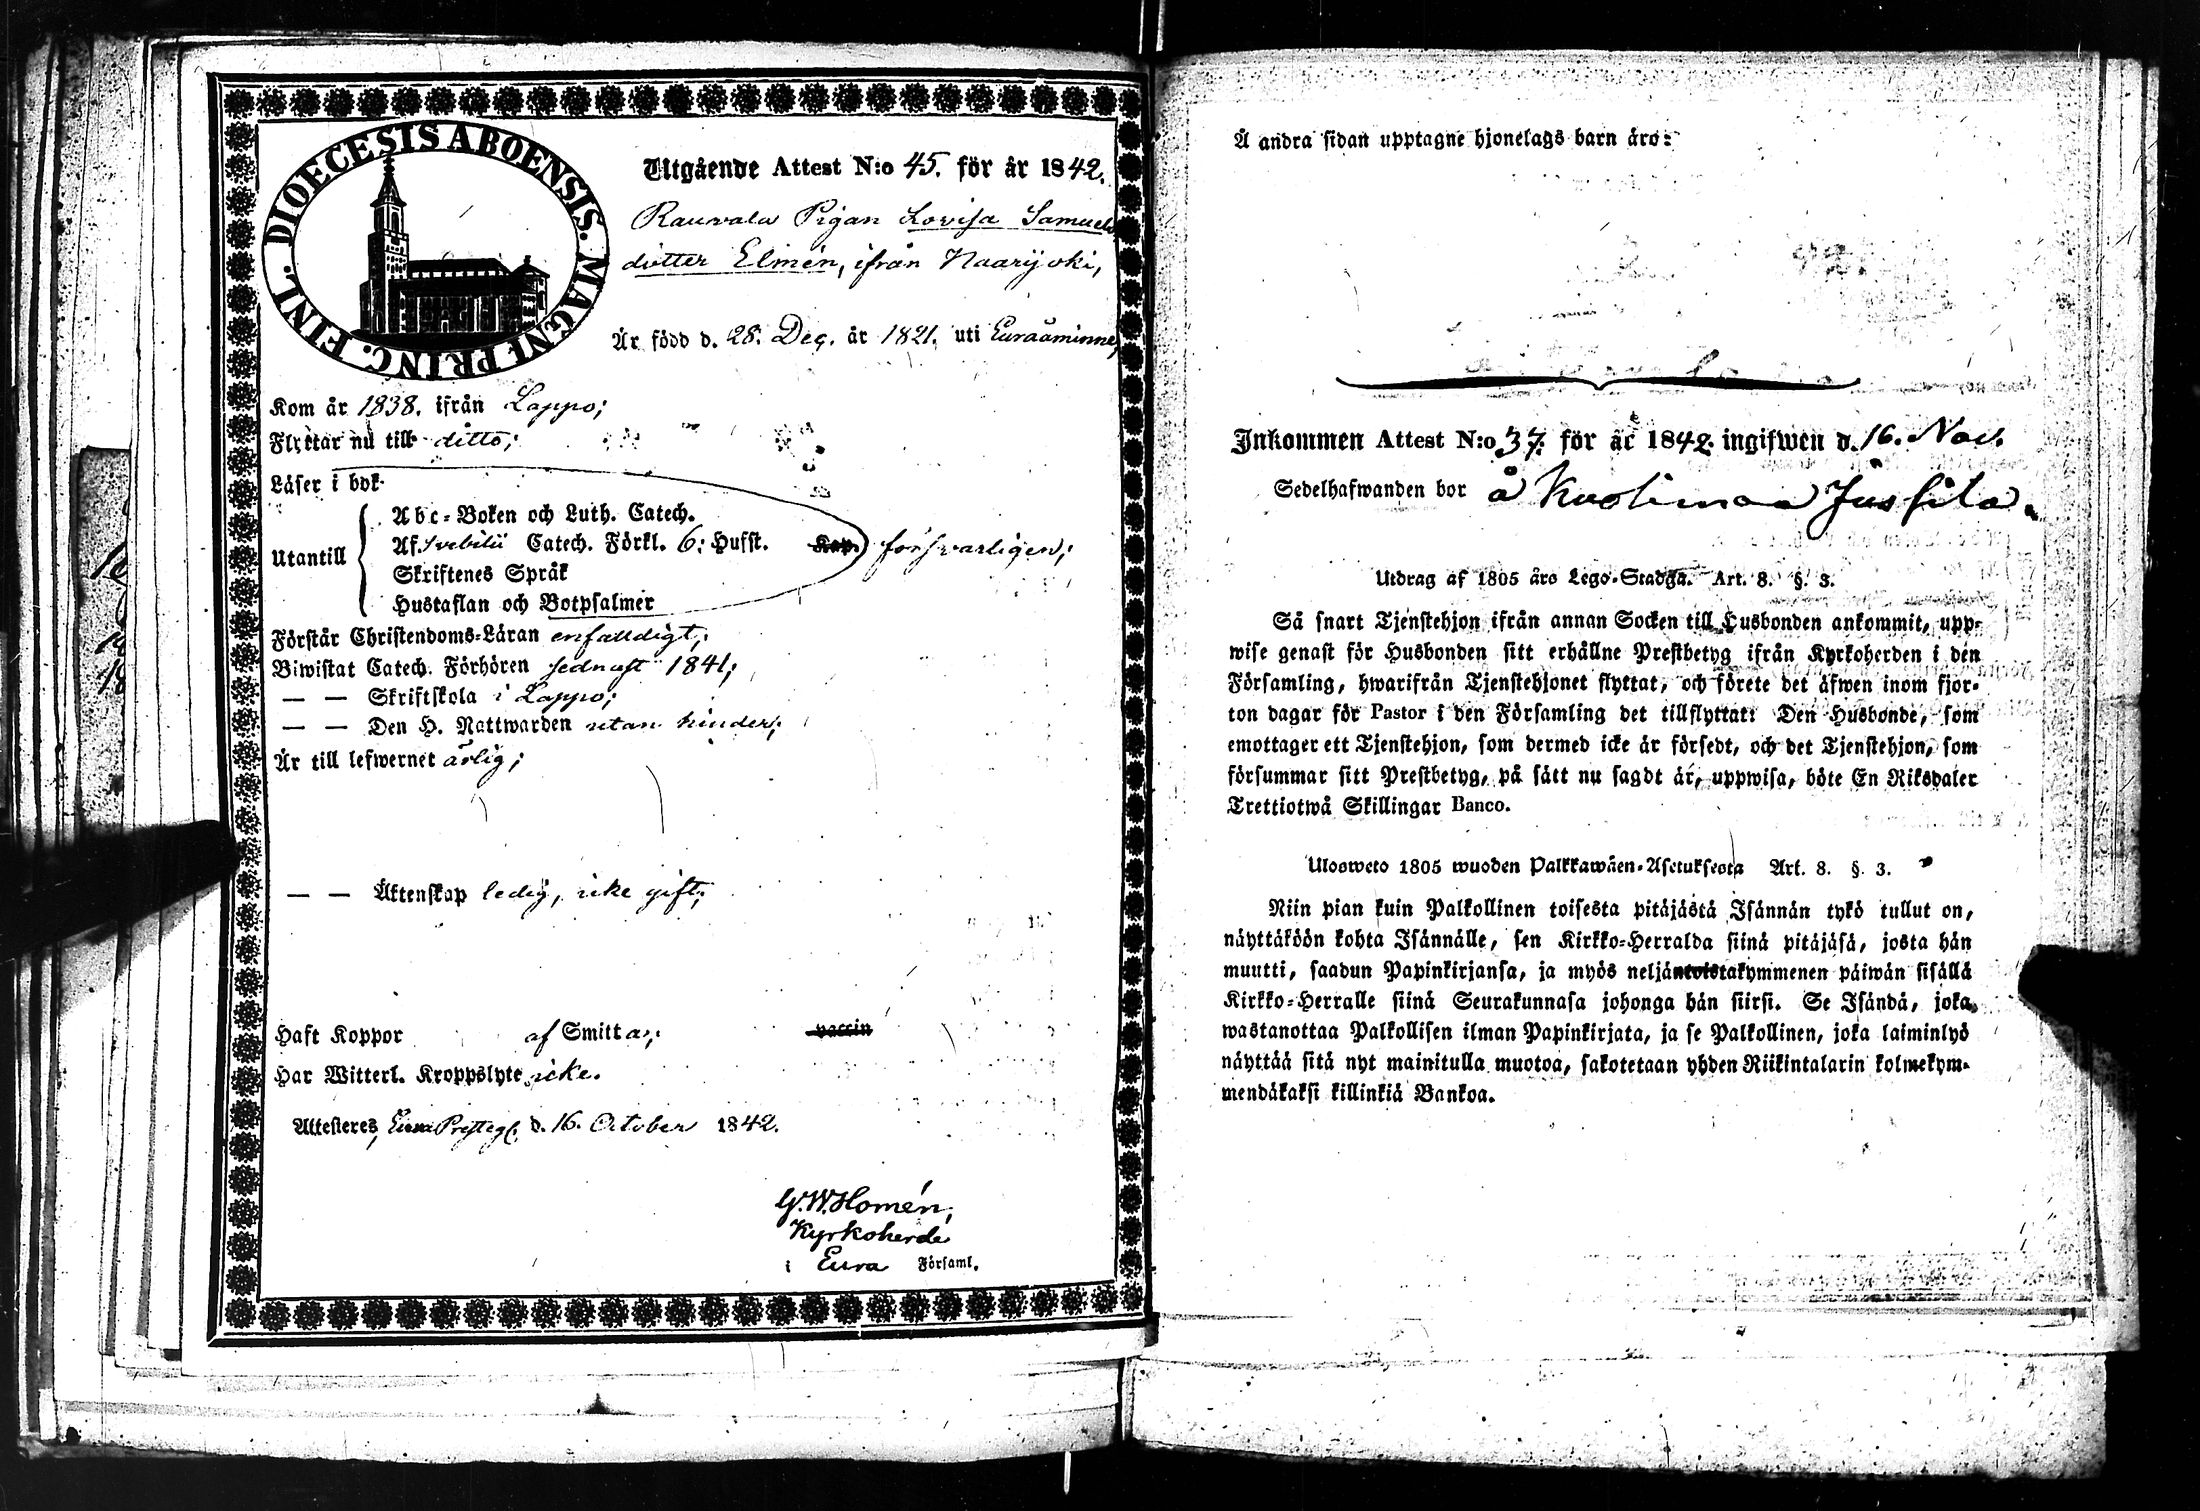 DIOECESIS ABOENSIS. MAGNI PRINC. FINL.
Utgående Attest N:o 45. för år 1842.
Rauvala Pigan Lovisa Samuels
dotter Elmén, ifrån Naarijoki,
Är född d. 28. Dec. år 1821. uti Euraåminne,
Kom år 1838. ifrån Lappo;
Flyttar nu till ditto;
Läser i bok
Utantill
Abc-Boken och Luth. Catech.
Af Svebilii Catech. Förkl. 6: Husst. Kap. försvarligen;
Skriftenes Språk
Hustaflan och Botpsalmer
Förstår Christendoms-Läran enfalldigt;
Biwistat Catech. Förhören sednast 1841;
— — Skriftskola i Lappo;
— — Den H. Nattwarden utan hinder;
Är till lefwernet ärlig;
— — Äktenskap ledig, icke gift;
Haft Koppor af Smitta; vaccin
Har Witterl. Kroppslyte icke.
Attesteres, Eura Presteg. d. 16. October 1842.
G. W. Homén,
Kyrkoherde
i Eura Församl.
Å andra sidan upptagne hjonelags barn äro:
Inkommen Attest N:o 37. för år 1842. ingifwen d. 16. Nov.
Sedelhafwanden bor å Kuolimaa Jussila.
Utdrag af 1805 års Lego-Stadga. Art. 8. §. 3.
Så snart Tjenstehjon ifrån annan Socken till Husbonden ankommit, upp-
wise genast för Husbonden sitt erhållne Prestbetyg ifrån Kyrkoherden i den
Församling, hwarifrån Tjenstehjonet flyttat, och förete det äfwen inom fjor-
ton dagar för Pastor i den Församling det tillflyttat: Den Husbonde, som
emottager ett Tjenstehjon, som dermed icke är försedt, och det Tjenstehjon, som
försummar sitt Prestbetyg, på sätt nu sagdt är, uppwisa, böte En Riksdaler
Trettiotwå Skillingar Banco.
Ulosweto 1805 wuoden Palkkawäen-Asetuksesta Art. 8. §. 3.
Niin pian kuin Palkollinen toisesta pitäjästä Isännän tykö tullut on,
näyttäköön kohta Isännälle, sen Kirkko-Herralda siinä pitäjäsä, josta hän
muutti, saadun Papinkirjansa, ja myös neljäntoistakymmenen päiwän sisällä
Kirkko-Herralle siinä Seurakunnasa johonga hän siirsi. Se Isändä, joka
wastanottaa Palkollisen ilman Papinkirjata, ja se Palkollinen, joka laiminlyö
näyttää sitä nyt mainitulla muotoa, sakotetaan yhden Riikintalarin kolmekym-
mendäkaksi killinkiä Bankoa.